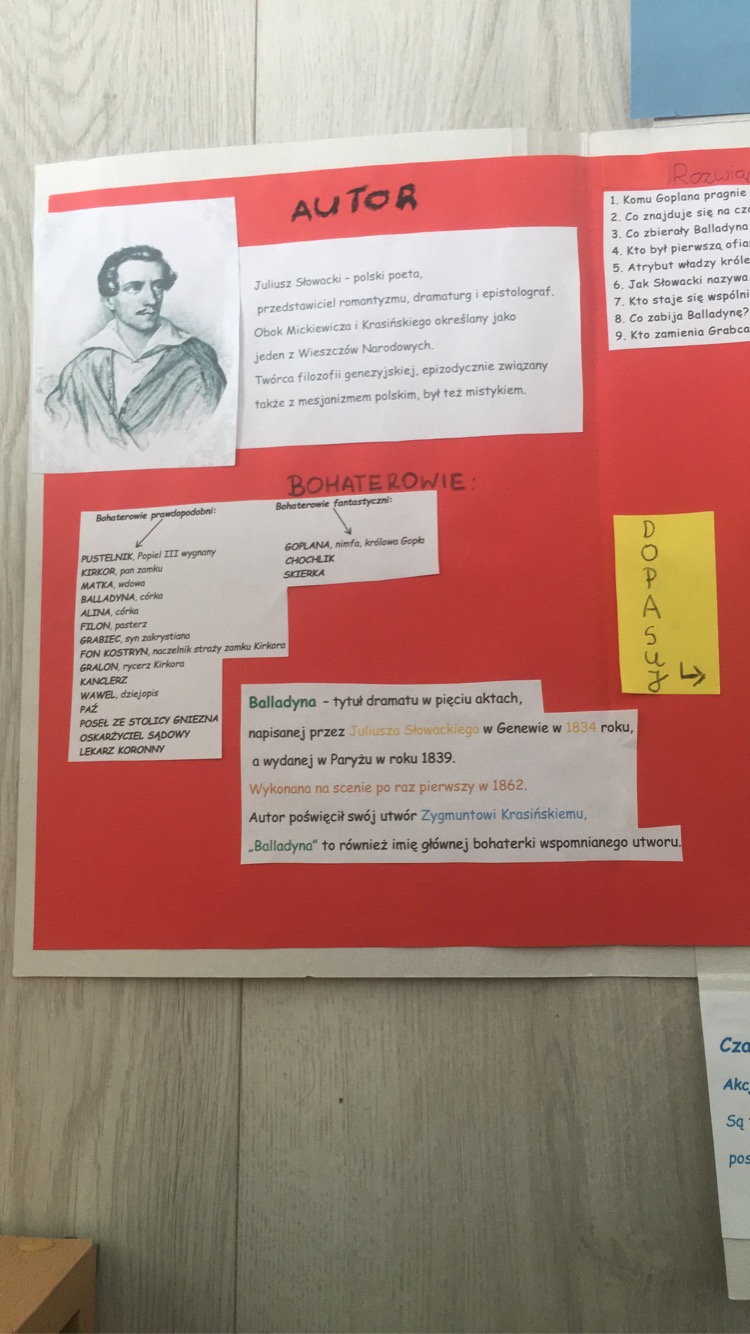 AUTOR
Juliusz Słowacki - polski poeta,
przedstawiciel romantyzmu, dramaturg i epistolograf.
Obok Mickiewicza i Krasińskiego określany jako
jeden z Wieszczów Narodowych.
Twórca filozofii genezyjskiej, epizodycznie związany
także z mesjanizmem polskim, był też mistykiem.
BOHATEROWIE:
Bohaterowie prawdopodobni:
PUSTELNIK, Popiel III wygnany
KIRKOR, pan zamku
MATKA, wdowa
BALLADYNA, córka
ALINA, córka
FILON, pasterz
GRABIEC, syn zakrystiana
FON KOSTRYN, naczelnik straży zamku Kirkora
GRALON, rycerz Kirkora
KANCLERZ
WAWEL, dziejopis
PAŹ
POSEŁ ZE STOLICY GNIEZNA
OSKARŻYCIEL SĄDOWY
LEKARZ KORONNY
Bohaterowie fantastyczni:
GOPLANA, nimfa, królowa Gopła
CHOCHLIK
SKIERKA
Balladyna - tytuł dramatu w pięciu aktach,
napisanej przez Juliusza Słowackiego w Genewie w 1834 roku,
a wydanej w Paryżu w roku 1839.
Wykonana na scenie po raz pierwszy w 1862.
Autor poświęcił swój utwór Zygmuntowi Krasińskiemu,
„Balladyna" to również imię głównej bohaterki wspomnianego utworu.
1. Komu Goplana pragnie
2. Co znajduje się na
3. Co zbierały Balladyna
4. Kto był pierwszą
5. Atrybut władzy
6. Jak Słowacki nazywa
7. Kto staje się
8. Co zabija Balladynę?
9. Kto zamienia
DOPASUJ
Są